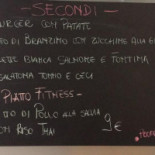 - SECONDI -
BURGER CON PATATE
DI BRANZINO CON ZUCCHINE
BIANCA SALMONE E FONTINA
SALATONA TONNO E CECI
PIATTO FITNESS -
DI POLLO ALLA
CON RISO THAI 9€